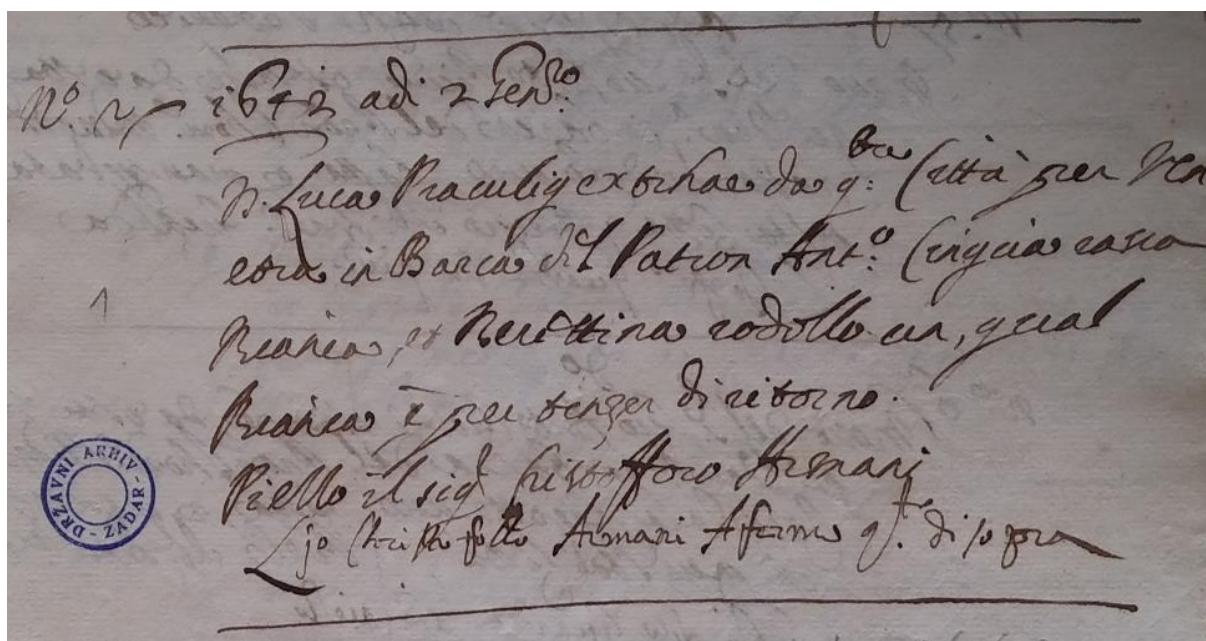 N.o 2 1642 adi 2 Gen.ro
S. Luca Praculig extrhae da q.sta Città per Ven
etia in Barca del Patron Ant.o Cingria rassa
Bianca, et Berettina rodollo un, qual
Bianca è per tenger di ritorno.
Piello il sig.r Cristofforo Armani
Jo Christofollo Armani Afermo q.to di sopra
1
DRŽAVNI ARHIV - ZADAR -